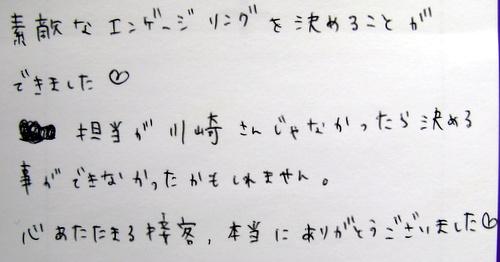 素敵なエンゲージリングを決めることが
できました♡
担当が川崎さんじゃなかったら決める
事ができなかったかもしれません。
心あたたまる接客,本当にありがとうございました♡